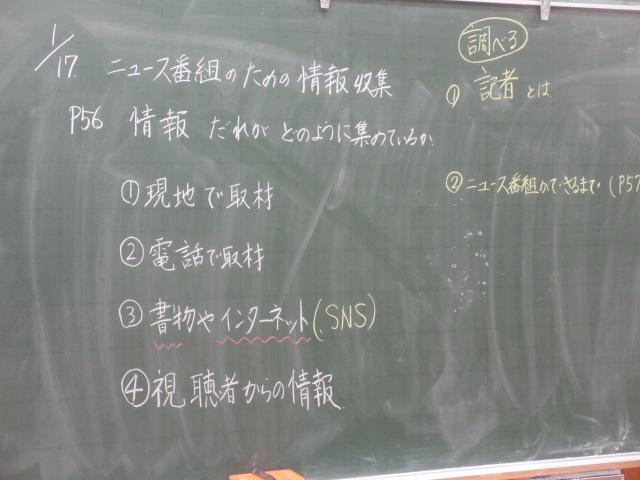 1/17. ニュース番組のための情報収集
P56 情報 だれが どのように集めているか
①現地で取材
②電話で取材
③書物やインターネット(SNS)
④視聴者からの情報
調べる
① 記者とは
②ニュース番組ができるまで(P57